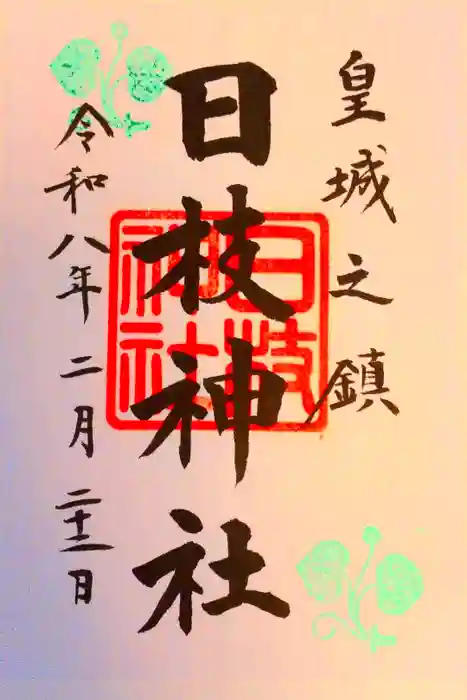 皇城之鎮
日枝神社
日枝
神社
令和八年二月二十二日